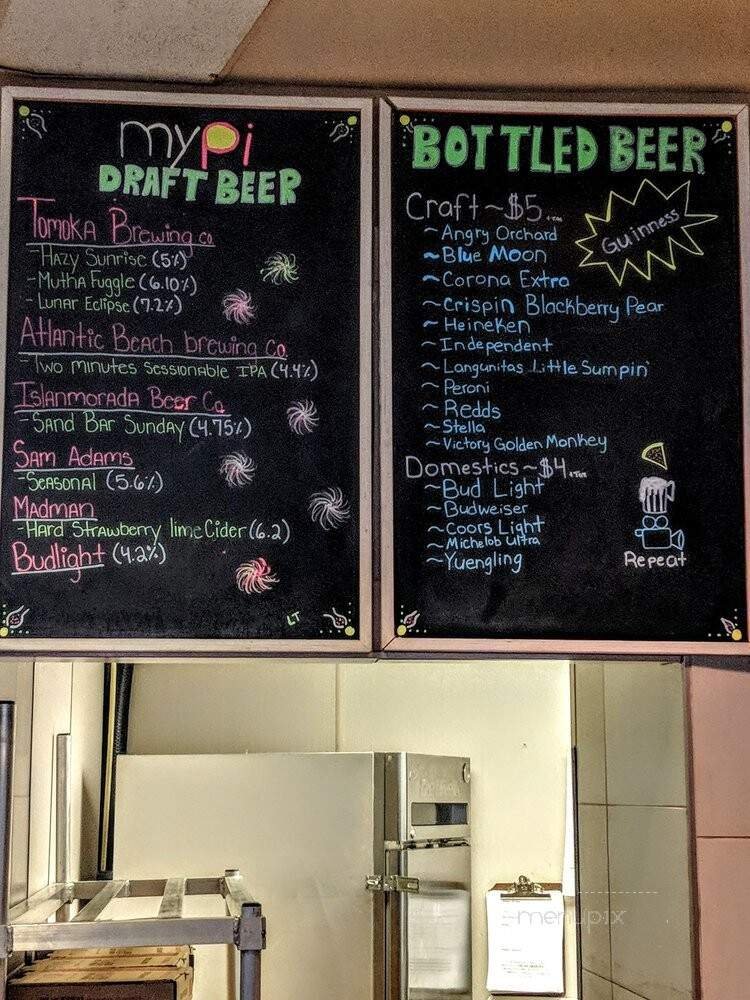 mypi
DRAFT BEER
Tomoka Brewing co
-Hazy Sunrise (5%)
-Mutha Fuggle (6.10%)
-Lunar Eclipse (7.2%)
Atlantic Beach brewing Co.
-Two minutes sessionable IPA (4.4%)
Islanmorada Beer Co.
-Sand Bar Sunday (4.75%)
Sam Adams
-Seasonal (5.6%)
Madman
-Hard Strawberry lime Cider (6.2)
Budlight (4.2%)
LT
BOTTLED BEER
Craft ~ $5 +Tax
Guinness
~Angry Orchard
~Blue Moon
~Corona Extra
~Crispin Blackberry Pear
~Heineken
~Independent
~Langunitas Little Sumpin'
~Peroni
~Redds
~Stella
~Victory Golden Monkey
Domestics ~ $4 +Tax
~Bud Light
~Budweiser
~Coors Light
~Michelob Ultra
~Yuengling
Repeat
menupix